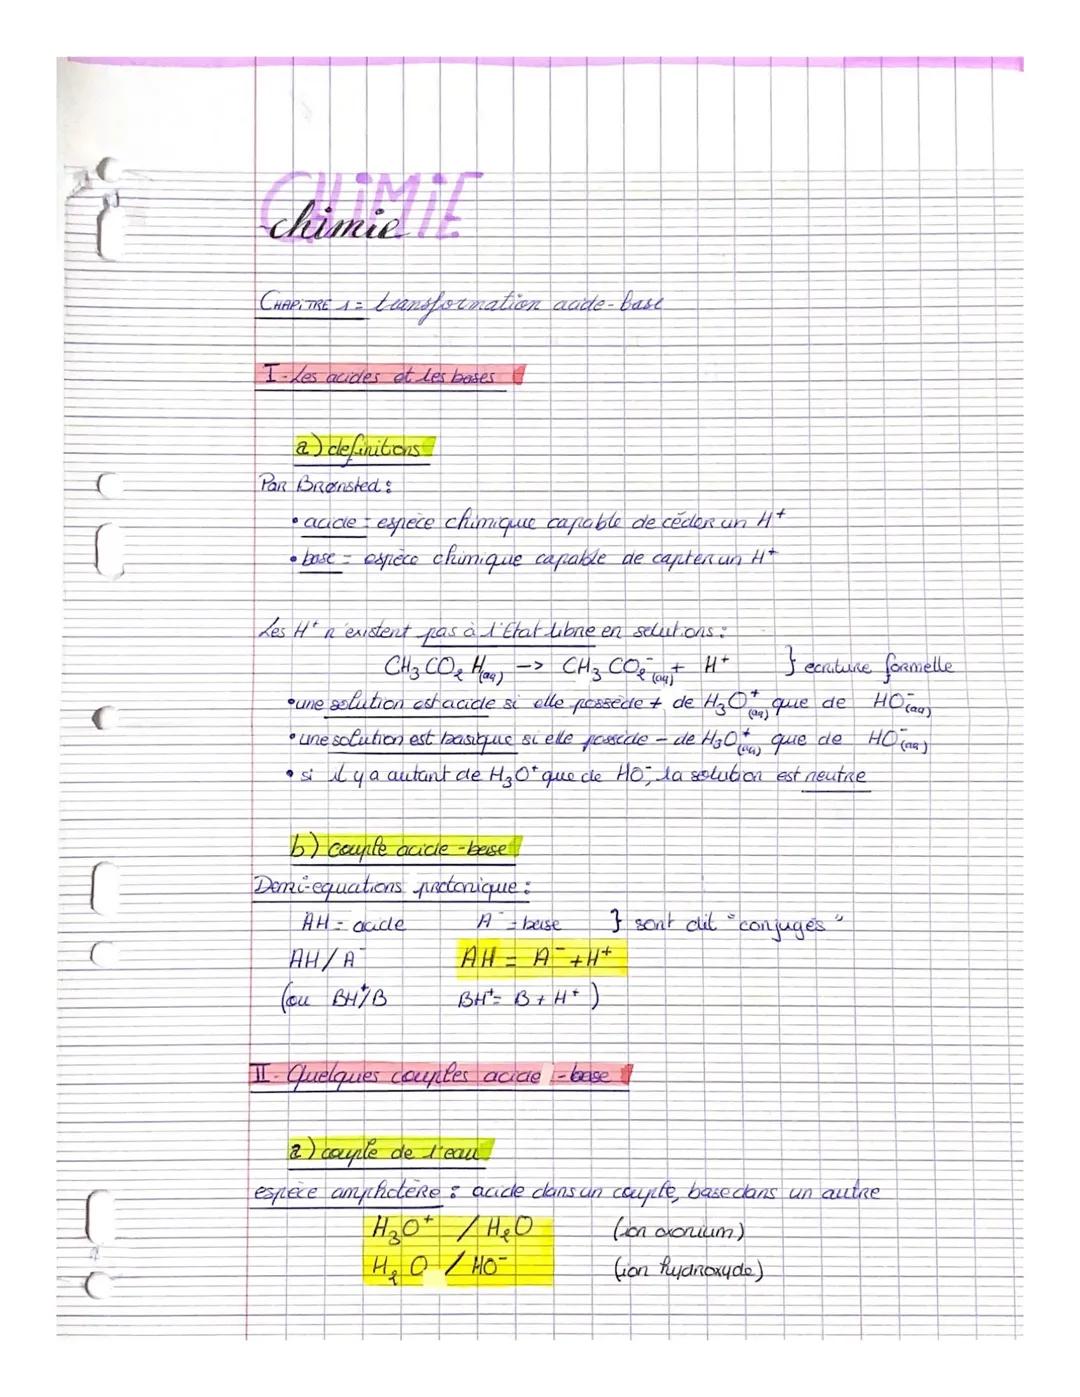 CHiMiE
chimie
CHAPITRE 1 = transformation acide-base
I - Les acides et les bases
a) definitions
Par Brønsted :
• acide = espèce chimique capable de céder un H⁺
• base = espèce chimique capable de capter un H⁺
Les H⁺ n'existent pas à l'Etat libre en solutions :
CH₃CO₂H(aq) -> CH₃CO₂⁻(aq) + H⁺ } ecriture formelle
• une solution est acide si elle possède + de H₃O⁺(aq) que de HO⁻(aq)
• une solution est basique si elle possède - de H₃O⁺(aq) que de HO⁻(aq)
• si il y a autant de H₃O⁺ que de HO⁻, la solution est neutre
b) couple acide-base
Demi-equations protonique :
AH = acide A⁻ = base } sont dit "conjugés"
AH/A⁻ AH = A⁻ + H⁺
(ou BH⁺/B BH⁺ = B + H⁺)
II - Quelques couples acide - base
a) couple de l'eau
espèce amphotère : acide dans un couple, base dans un autre
H₃O⁺ / H₂O (ion oxonium)
H₂O / HO⁻ (ion hydroxyde)